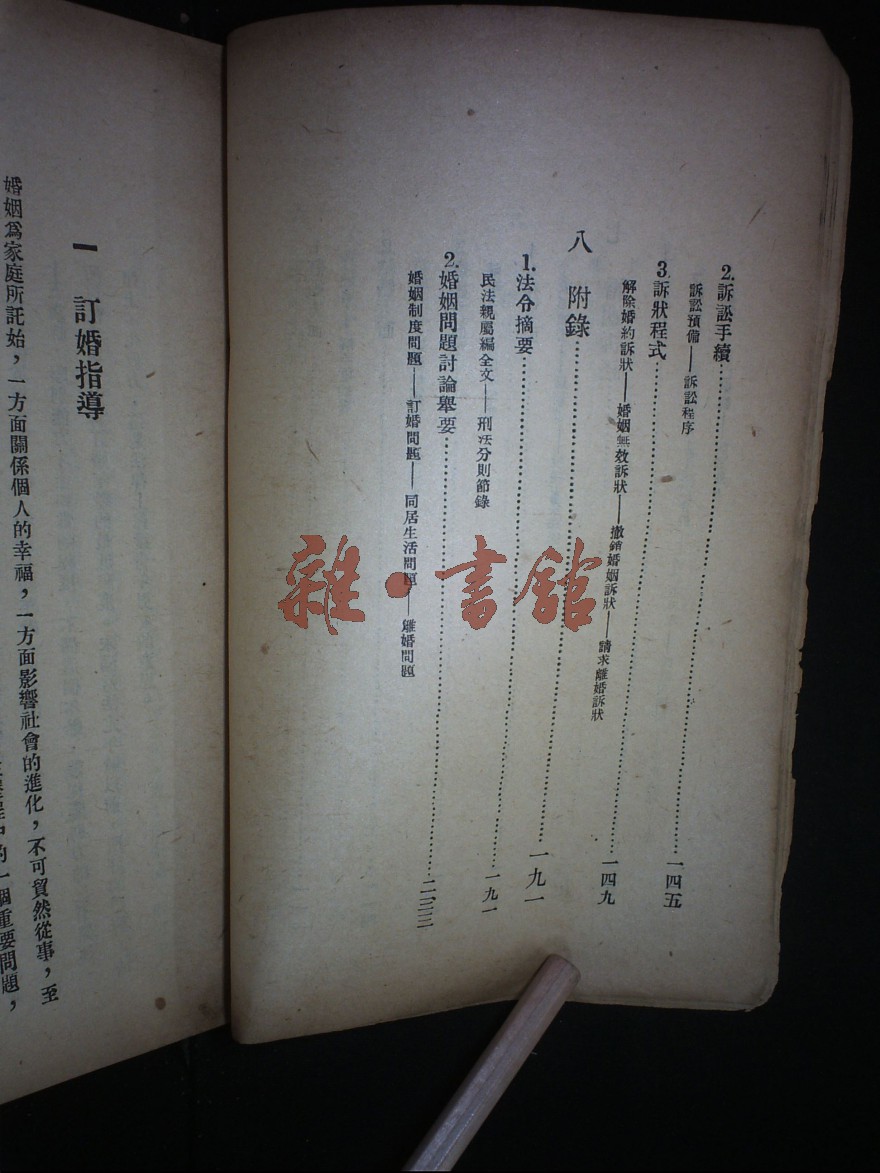 2.訴訟手續……一四五
訴訟預備——訴訟程序
3.訴狀程式……一四九
解除婚約訴狀——婚姻無效訴狀——撤銷婚姻訴狀——請求離婚訴狀
八 附錄……一九一
1.法令摘要……一九一
民法親屬編全文——刑法分則節錄
2.婚姻問題討論舉要……二三三
婚姻制度問題——訂婚問題——同居生活問題——離婚問題
一 訂婚指導
婚姻爲家庭所託始，一方面關係個人的幸福，一方面影響社會的進化，不可貿然從事，至
中的一個重要問題，
雜·書館